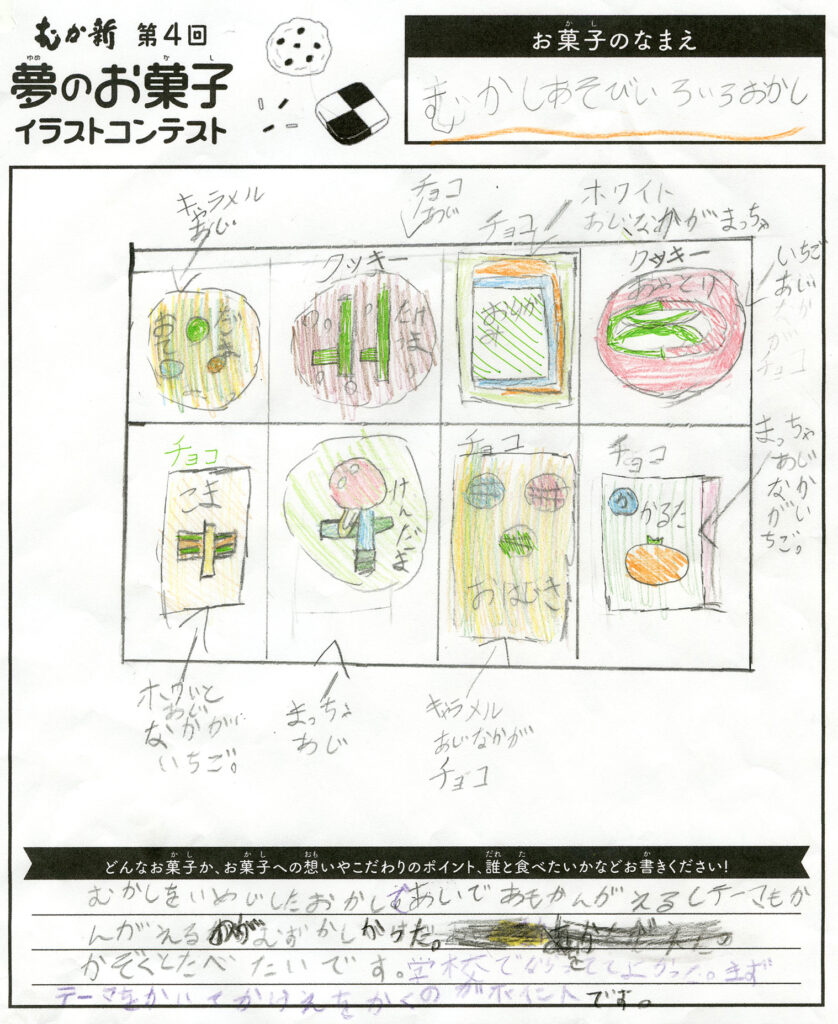 むか新 第4回
夢のお菓子
イラストコンテスト
お菓子のなまえ
むかしあそびいろいろおかし
キャラメル
あじ
チョコ
あじ
チョコ
ホワイト
あじなかがまっちゃ
いちご
あじ
なか
が
チョコ
おてだま
クッキー
たけうま
おりがみ
クッキー
あやとり
チョコ
こま
けんだま
チョコ
おはじき
チョコ
かるた
まっちゃ
あじ
なかい
が
ちご。
ホワいと
あじ
なかが
いちご。
まっちゃ
あじ
キャラメル
あじなかが
チョコ
どんなお菓子か、お菓子への想いやこだわりのポイント、誰と食べたいかなどお書きください!
むかしをいめじしたおかし
あいであもかんがえるしテーマもか
んがえるのがむずかしかった。
かぞくとたべたいです。学校でならっててよかった。まず
テーマをかいてかけえをかくのがポイントです。